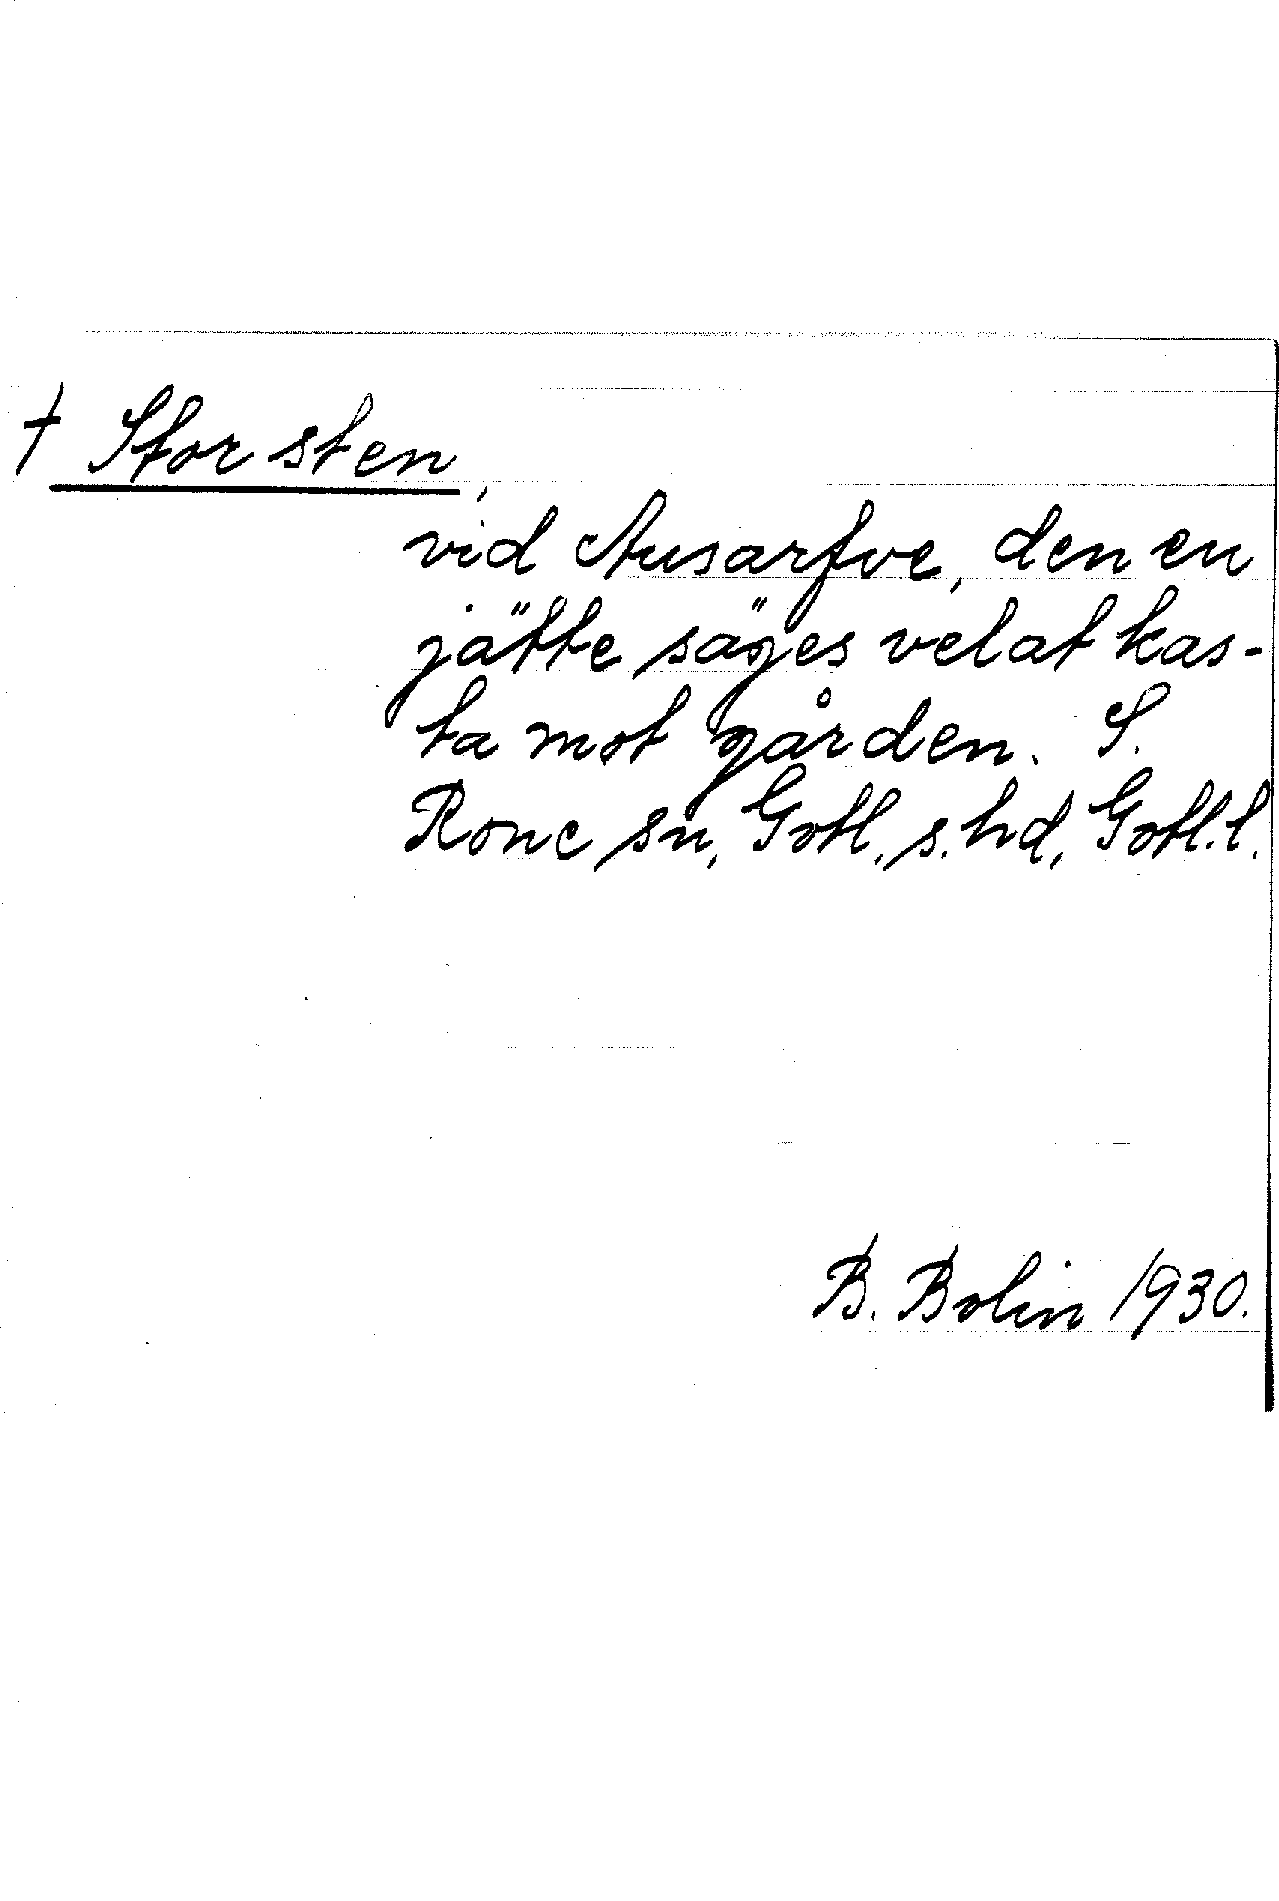 † Stor sten,
vid Ausarfve, den en
jätte säges velat kas-
ta mot gården. S.
Rone sn, Gotl. s. hd, Gotl. l.
B. Bolin 1930.